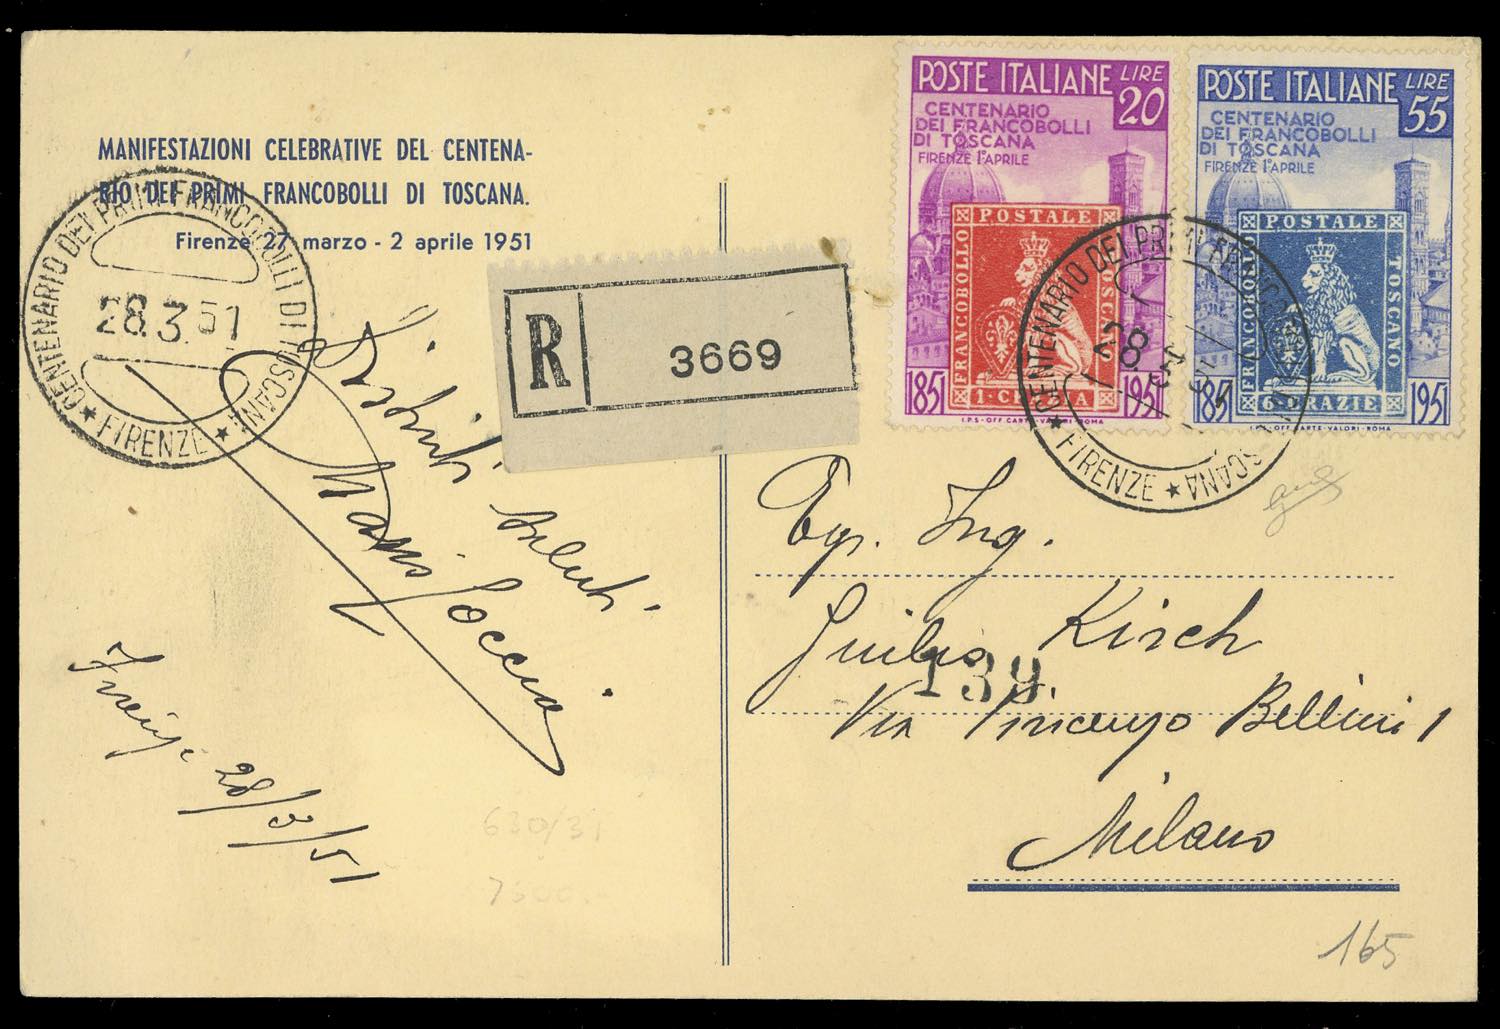 MANIFESTAZIONI CELEBRATIVE DEL CENTENA-
RIO DEI PRIMI FRANCOBOLLI DI TOSCANA.
Firenze 27 marzo - 2 aprile 1951
CENTENARIO DEI PRIMI FRANCOBOLLI DI TOSCANA
28.3.51
★ FIRENZE ★
R 3669
POSTE ITALIANE LIRE 20
CENTENARIO
DEI FRANCOBOLLI
DI TOSCANA
FIRENZE 1° APRILE
POSTALE
FRANCOBOLLO
TOSCANO
1·CRAZIA
1851 1951
I.P.S-OFF CARTE-VALORI-ROMA
POSTE ITALIANE LIRE 55
CENTENARIO
DEI FRANCOBOLLI
DI TOSCANA
FIRENZE 1° APRILE
POSTALE
FRANCOBOLLO
TOSCANO
6·CRAZIE
1851 1951
I.P.S-OFF CARTE-VALORI-ROMA
CENTENARIO DEI PRIMI FRANCOBOLLI DI TOSCANA
28.3.51
★ FIRENZE ★
saluti
Mario
28/3/51
Egr. Ing.
Giulio Kirch
139
Via Vincenzo Bellini 1
Milano
630/31
7500.-
165